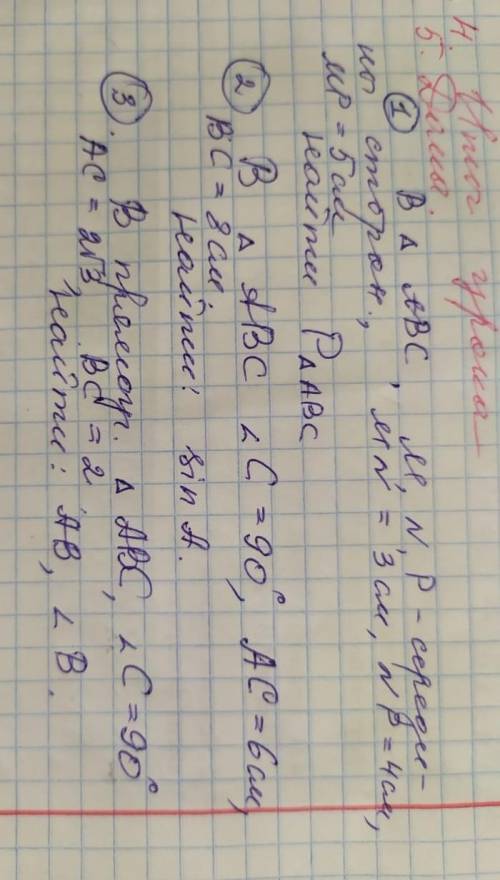 4. Итог урока
5. Дома:
① В △ ABC, M, N, P - середи-
ны сторон, MN = 3 см, NP = 4 см,
MP = 5 см
Найти P△ABC
② В △ ABC ∠C = 90°, AC = 6 см,
BC = 8 см
Найти: sin A.
③. В прямоуг. △ ABC, ∠C = 90°
AC = 2√3, BC = 2
Найти: AB, ∠B.